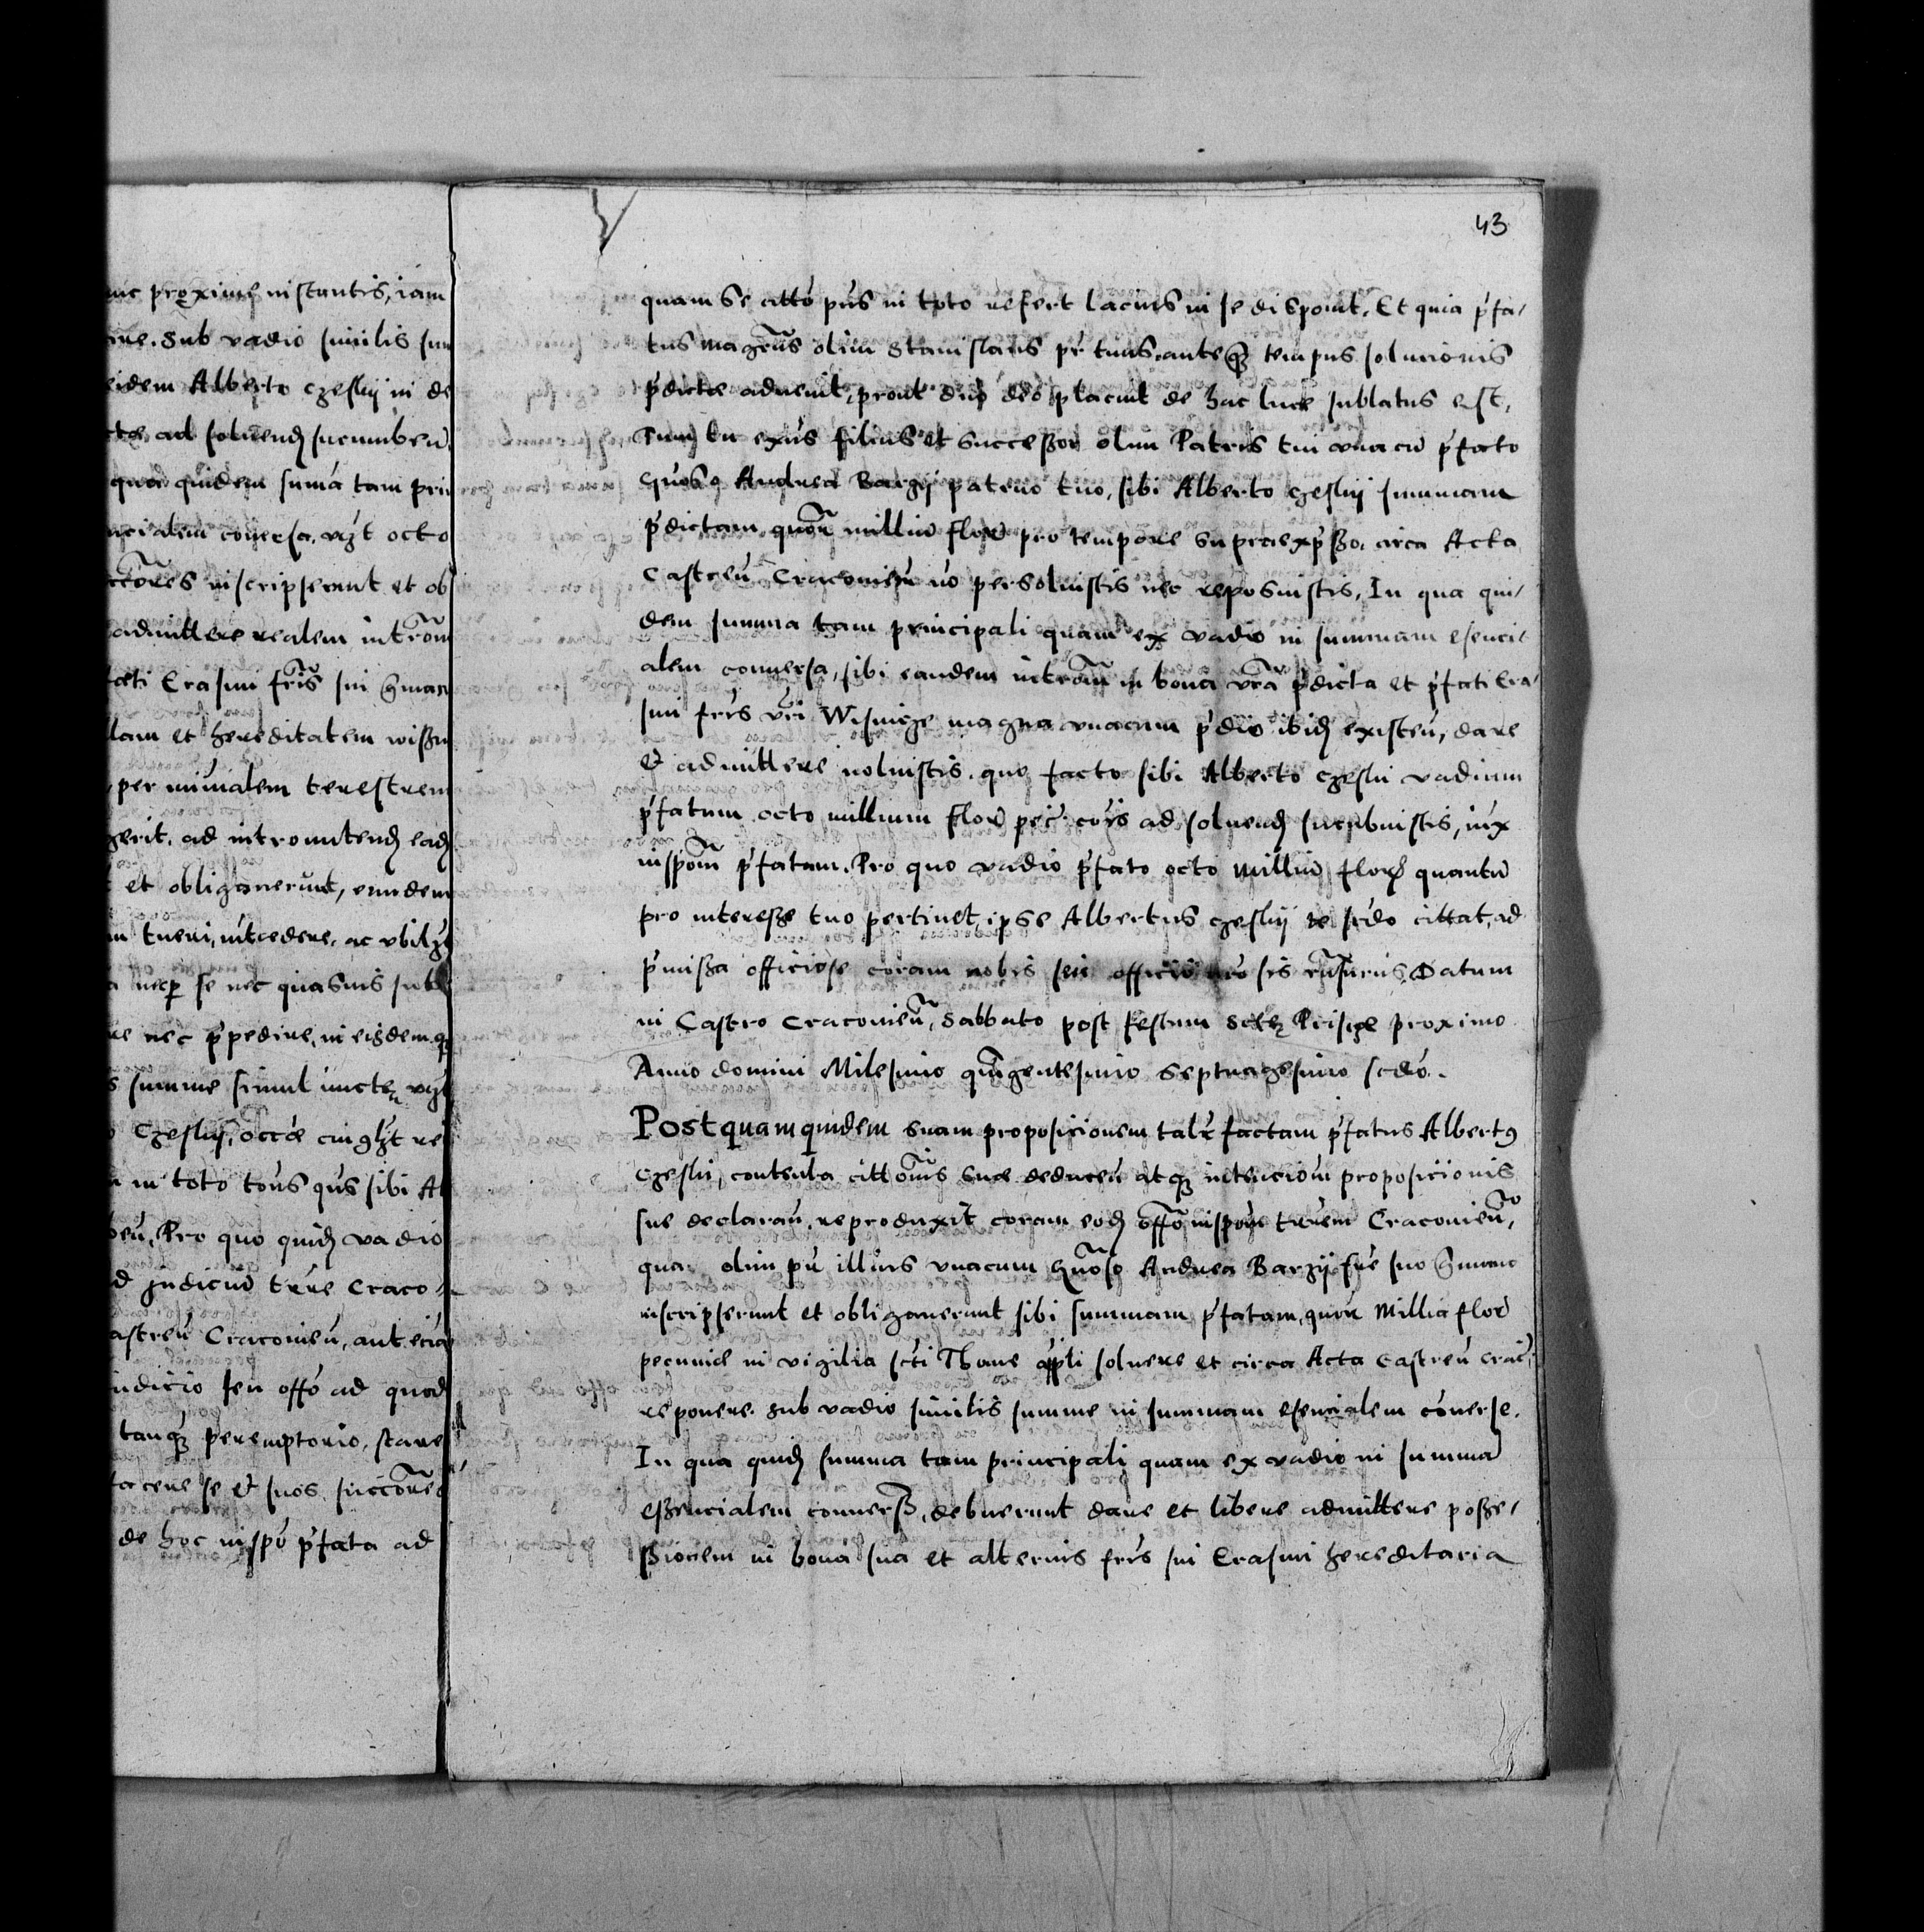 43
nc proxime instantis, iam
sub vadio similis sum
eidem Alberto Czeslij in de
ad solvend sucumben
qua quidem suma tam prin
ncialem conersa, vzt octo
inscripserunt et ob
admittere realem introm
fati Erasmi fris sui gman
lam et hereditatem
per minialem terestrem
gerit, ad intromittend ead
et obligaverunt, eundem
tueri, intcedere, ac
necp se nec quasuis sub
nec ppedire, in eisdem
summe simul iuncte, vzt
Czeslij,
in toto tons qus sibi Al
Pro quo quid vadio
d judiciu trre Craco-
astren Cracovien, aut ecia
iudicio seu offo ad quod
tanq peremptorio, stare
se et suos succore
de hoc inspo pfata ad
quam se citto pns in toto refert lacius in se disponit. Et quia pfa/
tus magcus olim Stanislaus pr tuus, anteq tempus solucionis
pdicte advenit, prout dno deo placuit de hac luce sublatus est,
Tum tu exns filius et successor olim Patris tui unacu pfato
Gnoso Andrea Barzij patruo tuo, sibi Alberto Czeslij summam
pdictam, quor milliu flor pro tempore supraexpsso, circa Acta
Castren Cracovien no persoluistis nec reposuistis, In qua qui/
dem summa tam principali quam ex vadio in summam esenci/
alem conversa, sibi eandem introm in bona vra pdicta et pfati Era/
smi fris vri Wisnicze magna unacum pdio ibid existen, dare
et admittere noluistis, quo facto sibi Alberto Czesli vadium
pfatum octo millium flor pec cois ad solvend sucubuistis, iux
inspom pfatam. Pro quo vadio pfato octo milliu flor quantu
pro interesse tuo pertinet, ipse Albertus Czeslij te scdo cittat, ad
pmissa officiose coram nobis seu officio nro sis rnsurus, Datum
in Castro Cracovien, Sabbato post festum Scte Prisce proximo
Anno domini Milesimo quingentesimo Septuagesimo scdo.
Postquamquidem suam proposicionem talr factam pfatus Albertq
Czesli, contenta cittonis sue deducen atq intencion proposicionis
sue declaran, reproduxit coram eod offo inspom trrem Cracovien,
qua olim pn illuis unacum Gnoso Andrea Barzij fre suo gmano
inscripserunt et obligaverunt sibi summam pfatam, quor Millia flor
pecunie in vigilia scti Thome appli solvere et circa Acta Castren Crac
reponere sub vadio similis summe in summam esencialem converse.
In qua quid summa tam principali quam ex vadio in summa
essencialem conversa, debuerunt dare et libere admittere posse/
ssionem in bona sua et alterius fris sui Erasmi hereditaria